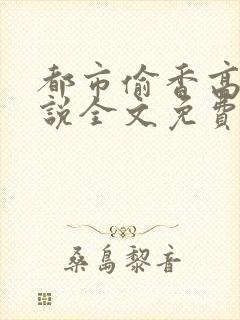 都市偷香高
說全文免費
桑島黎音